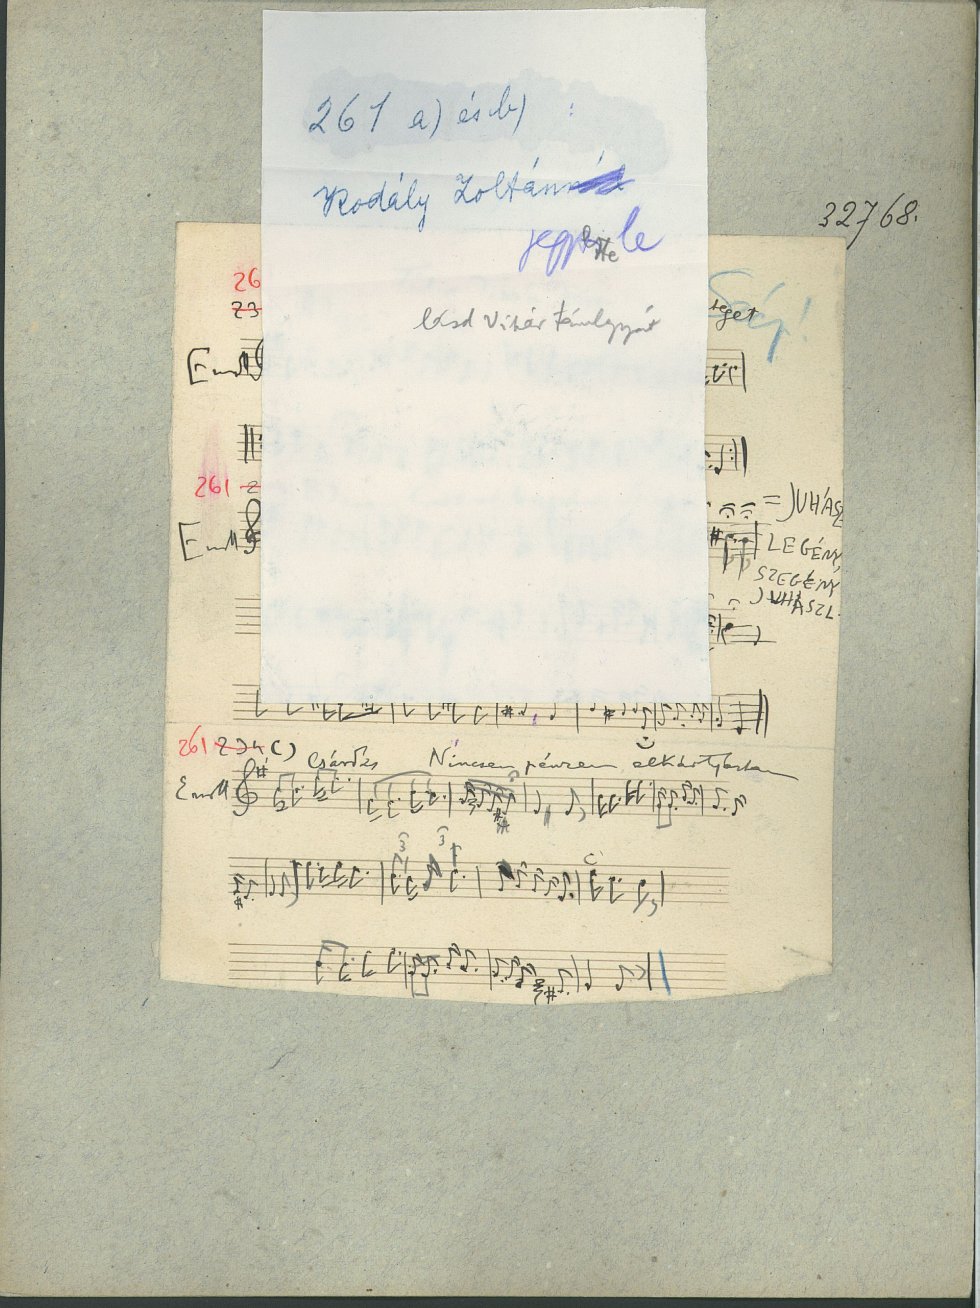 261 a) és b)
Kodály Zoltán
jegyezte le
lásd Vikár támlapját
32768.
26
23
Szép!
eget
E moll
261
E moll
= JUHÁSZ
LEGÉNY,
SZEGÉNY
JUHÁSZL.
261 234 C)
Csárdás Nincsen pénzem elkártyáztam
E moll
3 3
C